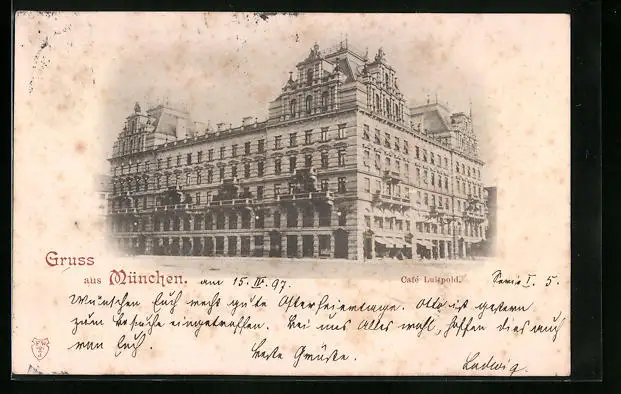 Gruss
aus München. am 15. IV. 97.
Café Luitpold.
Serie I. 5.
Wünschen Euch recht gute Osterfeiertage. Otto ist gestern
zum Besuche eingetroffen. Bei uns Alles wohl, hoffen dies auch
von Euch.
Beste Grüße.
Ludwig.